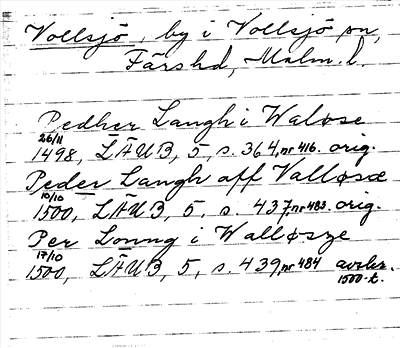 Vollsjö, by i Vollsjö sn,
Färshd, Malm. l.
Pedher Langh i Waløse
26/11
1498, LÄUB, 5, s. 364, nr 416. orig.
Peder Langh aff Valløsæ
10/10
1500, LÄUB, 5, s. 437, nr 483. orig.
Per Lonng i Walløsze
17/10
1500, LÄUB, 5, s. 439, nr 484 avskr.
1500-t.